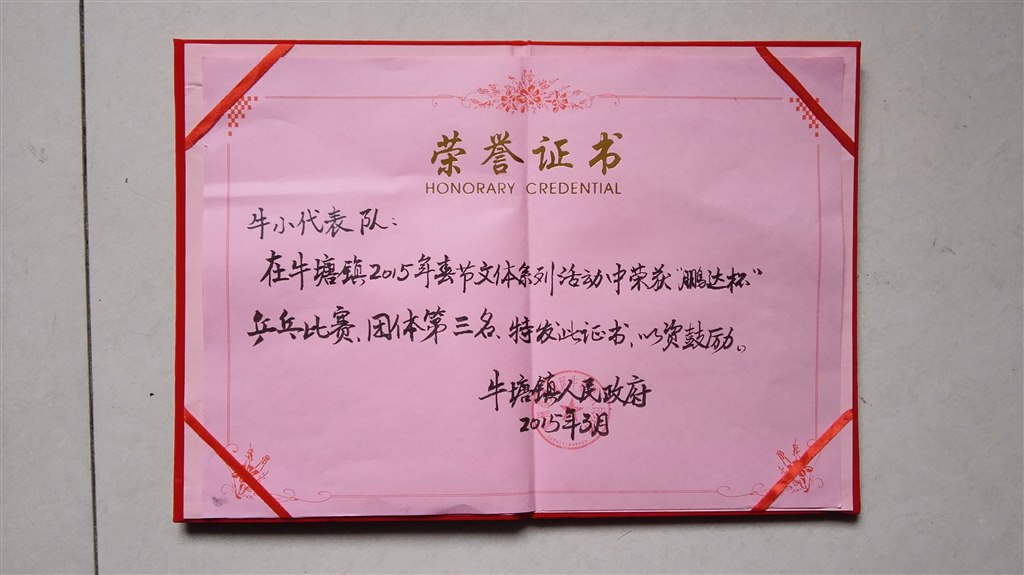 荣誉证书
HONORARY CREDENTIAL
牛小代表队：
在牛塘镇2015年春节文体系列活动中荣获“鹏达杯”
乒乓比赛、团体第三名、特发此证书，以资鼓励。
牛塘镇人民政府
2015年3月